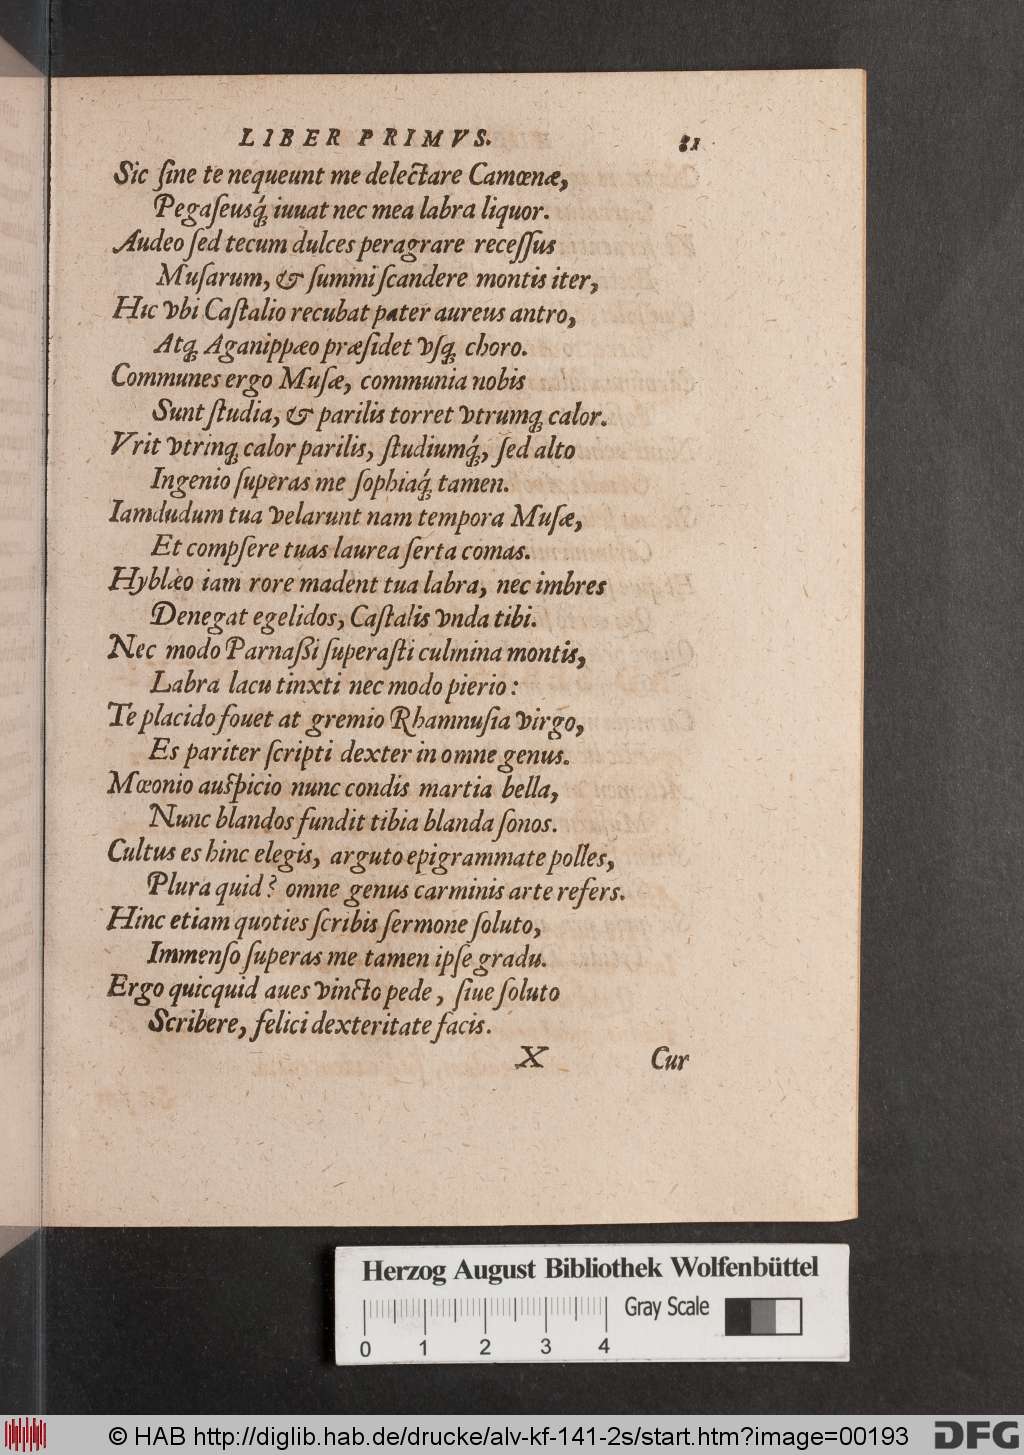 LIBER PRIMVS. 81
Sic ſine te nequeunt me delectare Camœnæ,
Pegaſeusq́; iuuat nec mea labra liquor.
Audeo ſed tecum dulces peragrare receſſus
Muſarum, & ſummi ſcandere montis iter,
Hic vbi Caſtalio recubat pater aureus antro,
Atq; Aganippæo præſidet vſq; choro.
Communes ergo Muſæ, communia nobis
Sunt ſtudia, & parilis torret vtrumq; calor.
Vrit vtrinq; calor parilis, ſtudiumq́;, ſed alto
Ingenio ſuperas me ſophiaq́; tamen.
Iamdudum tua velarunt nam tempora Muſæ,
Et compſere tuas laurea ſerta comas.
Hyblæo iam rore madent tua labra, nec imbres
Denegat egelidos, Caſtalis vnda tibi.
Nec modo Parnaßi ſuperaſti culmina montis,
Labra lacu tinxti nec modo pierio:
Te placido fouet at gremio Rhamnuſia virgo,
Es pariter ſcripti dexter in omne genus.
Mœonio auſpicio nunc condis martia bella,
Nunc blandos fundit tibia blanda ſonos.
Cultus es hinc elegis, arguto epigrammate polles,
Plura quid? omne genus carminis arte refers.
Hinc etiam quoties ſcribis ſermone ſoluto,
Immenſo ſuperas me tamen ipſe gradu.
Ergo quicquid aues vincto pede, ſiue ſoluto
Scribere, felici dexteritate facis.
X Cur
Herzog August Bibliothek Wolfenbüttel
Gray Scale
0 1 2 3 4
© HAB http://diglib.hab.de/drucke/alv-kf-141-2s/start.htm?image=00193 DFG